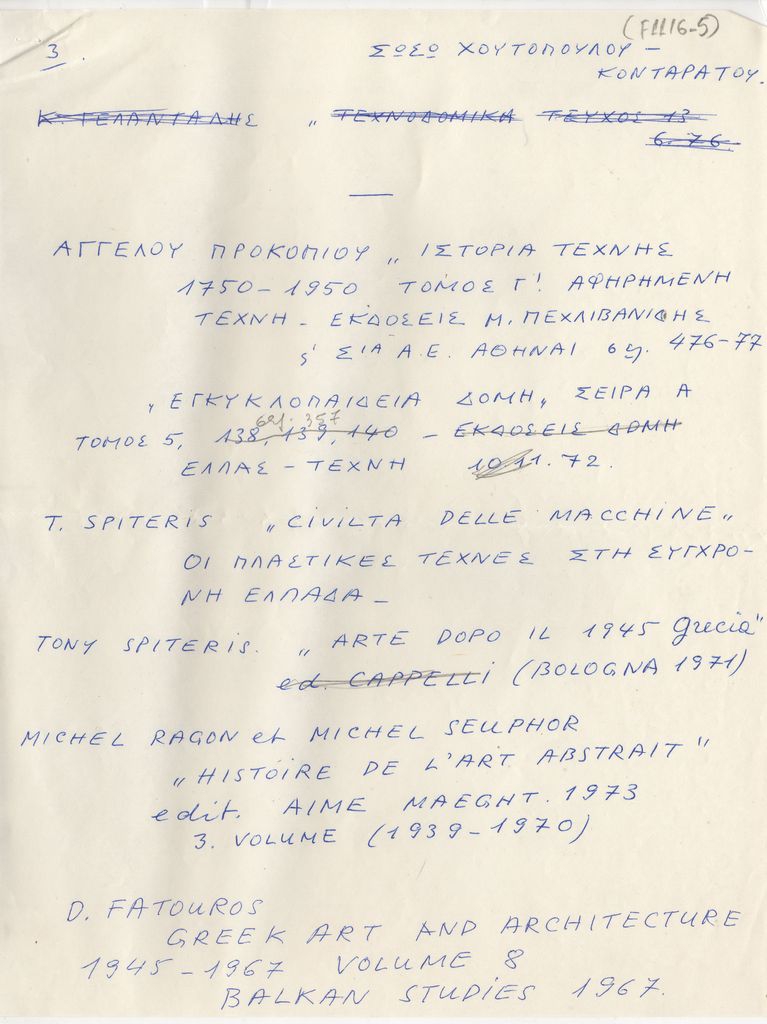 (F1116-5)
3.
ΣΩΣΩ ΧΟΥΤΟΠΟΥΛΟΥ –
ΚΟΝΤΑΡΑΤΟΥ.
Κ. ΓΕΛΑΝΤΑΛΗΣ „ ΤΕΧΝΟΔΟΜΙΚΑ ΤΕΥΧΟΣ 13
6.76.
—
ΑΓΓΕΛΟΥ ΠΡΟΚΟΠΙΟΥ „ ΙΣΤΟΡΙΑ ΤΕΧΝΗΣ
1750–1950 ΤΟΜΟΣ Γ'. ΑΦΗΡΗΜΕΝΗ
ΤΕΧΝΗ – ΕΚΔΟΣΕΙΣ Μ. ΠΕΧΛΙΒΑΝΙΔΗΣ
ς' ΣΙΑ Α.Ε. ΑΘΗΝΑΙ σελ. 476–77
„ ΕΓΚΥΚΛΟΠΑΙΔΕΙΑ ΔΟΜΗ„ ΣΕΙΡΑ Α
σελ. 357
ΤΟΜΟΣ 5, 138, 139, 140 – ΕΚΔΟΣΕΙΣ ΔΟΜΗ
ΕΛΛΑΣ – ΤΕΧΝΗ 10.11.72.
T. SPITERIS „CIVILTA DELLE MACCHINE„
ΟΙ ΠΛΑΣΤΙΚΕΣ ΤΕΧΝΕΣ ΣΤΗ ΣΥΓΧΡΟ–
ΝΗ ΕΛΛΑΔΑ –
TONY SPITERIS. „ARTE DOPO IL 1945 grecia"
ed. CAPPELLI (BOLOGNA 1971)
MICHEL RAGON et MICHEL SEUPHOR
„HISTOIRE DE L'ART ABSTRAIT"
edit. AIME MAEGHT. 1973
3. VOLUME (1939–1970)
D. FATOUROS
GREEK ART AND ARCHITECTURE
1945–1967 VOLUME 8
BALKAN STUDIES 1967.